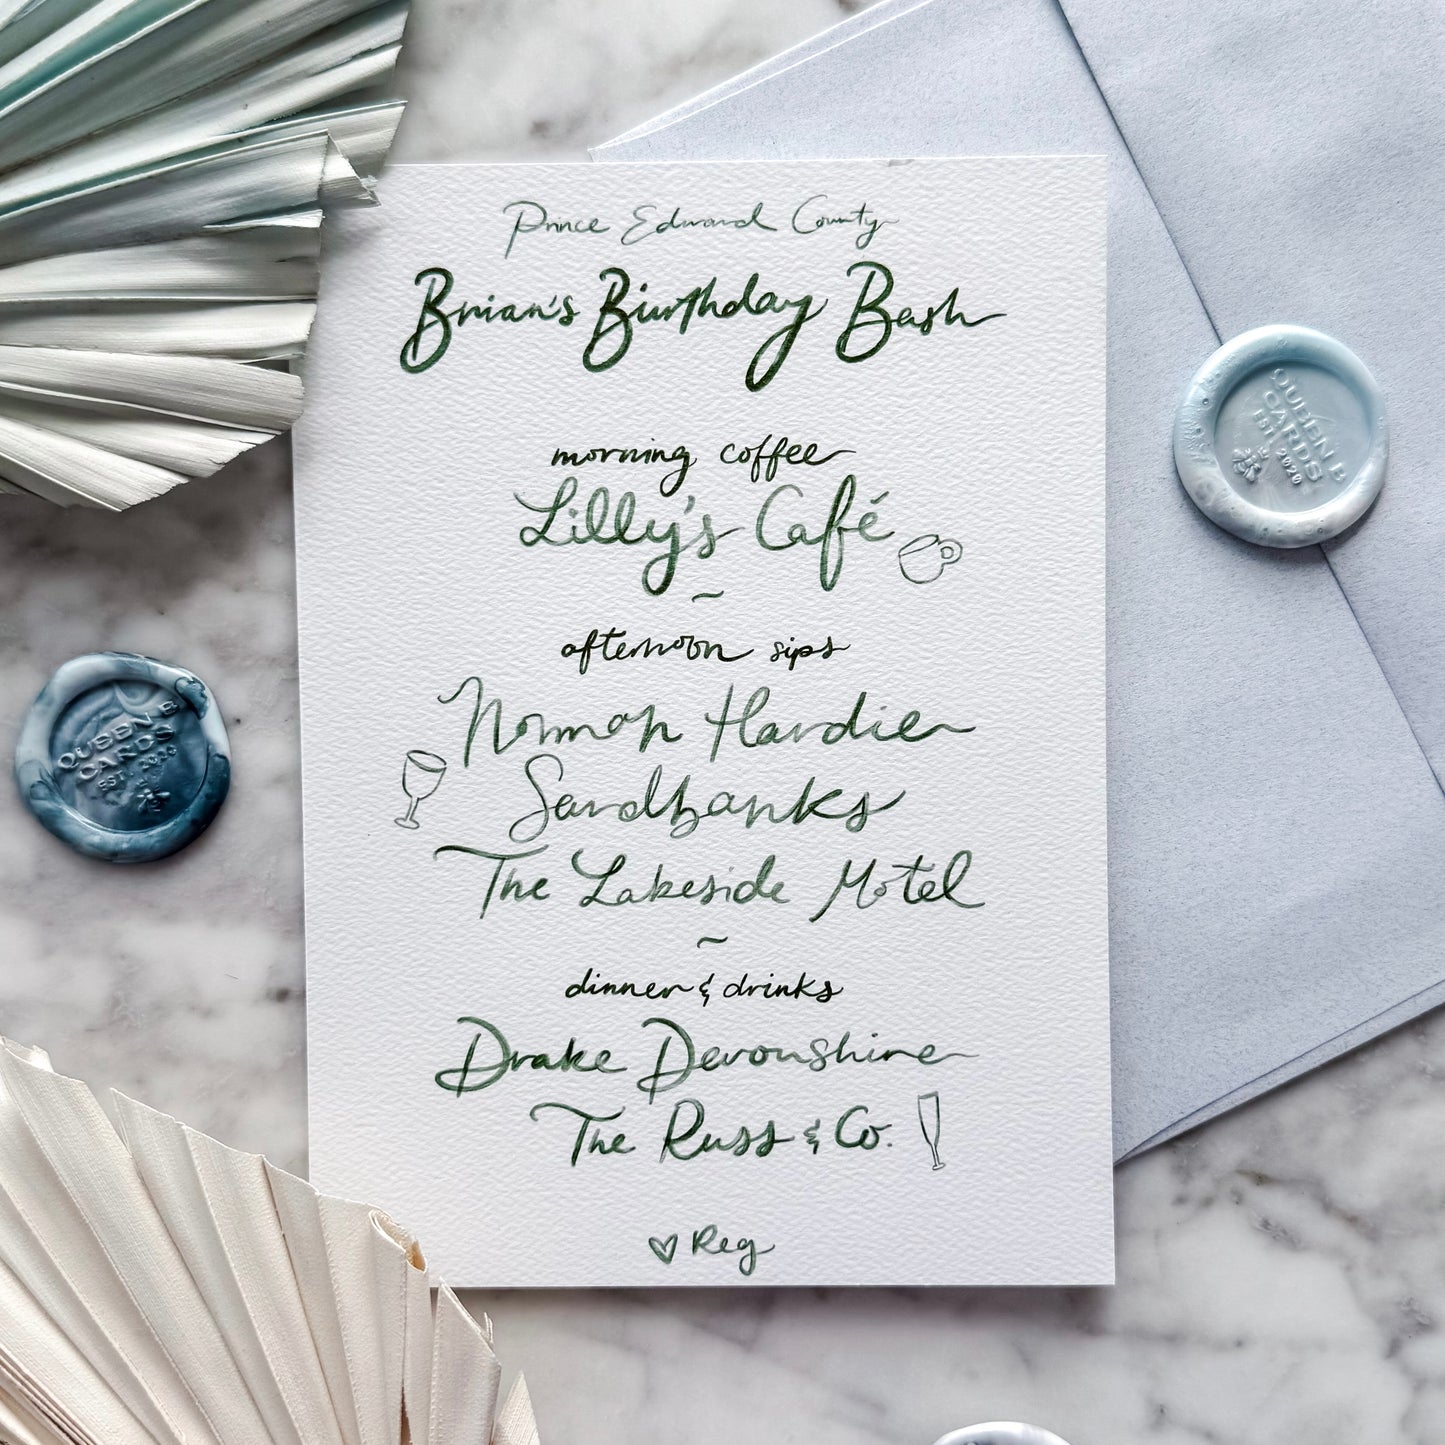 Prince Edward County
Brian's Birthday Bash
morning coffee
Lilly's Café
~
afternoon sips
Norman Hardie
Sandbanks
The Lakeside Motel
~
dinner & drinks
Drake Devonshire
The Russ & Co.
♡ Reg
QUEEN B
CARDS
EST. 2020
QUEEN B
CARDS
EST. 2020